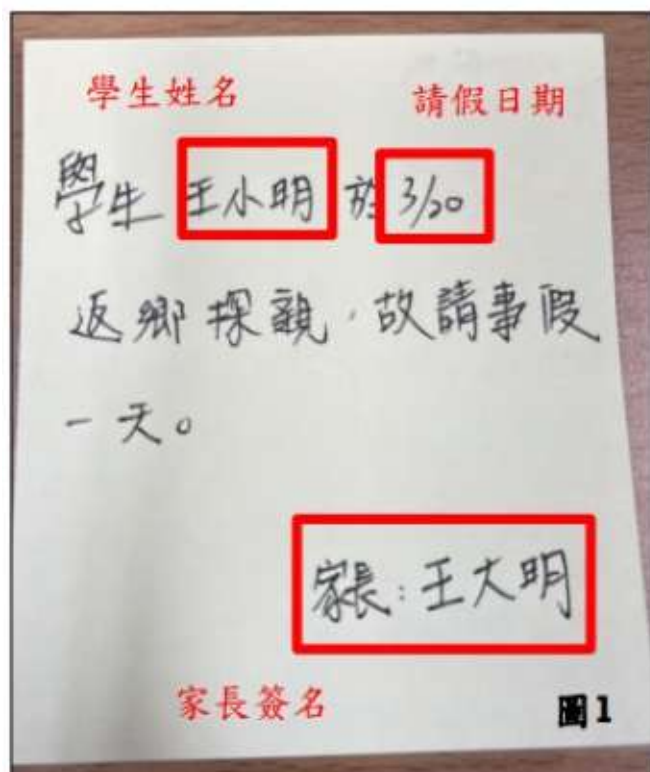 學生姓名 請假日期
學生 王小明 於 3/20
返鄉探親,故請事假
一天。
家長:王大明
家長簽名
圖1